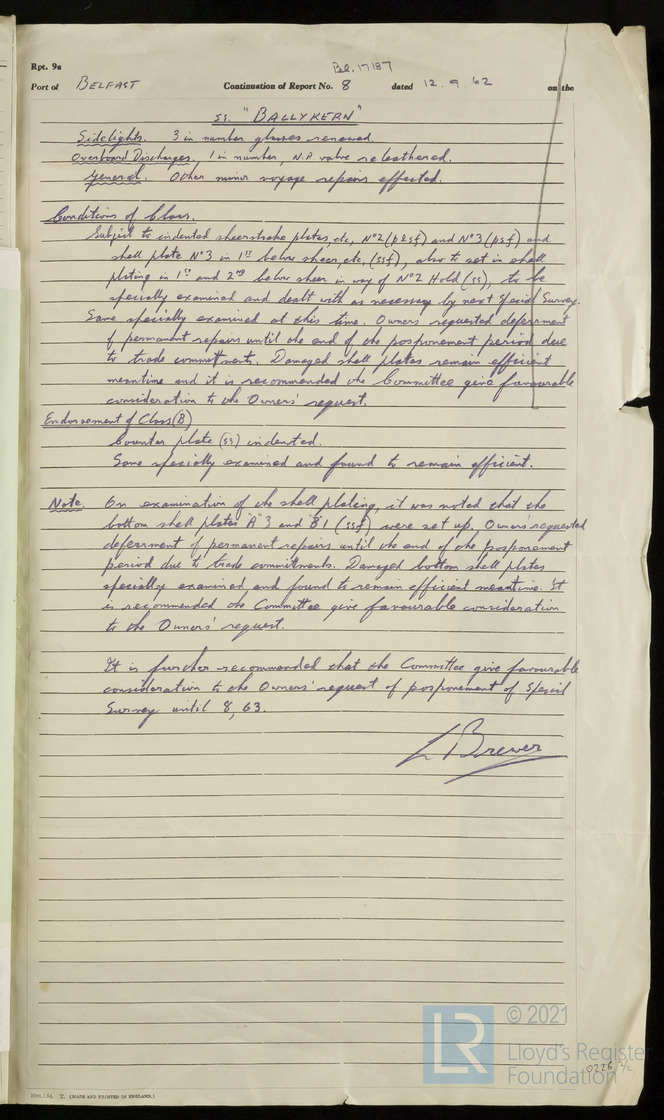 Rpt. 9a
Bel. 17187
Port of BELFAST Continuation of Report No. 8 dated 12. 9. 62 on the
ss. "BALLYKERN"
Sidelights. 3 in number glasses renewed.
Overboard Discharges, 1 in number, N.R. valve releathered.
General. Other minor voyage repairs effected.
Conditions of Class.
Subject to indented sheerstrake plates, etc, No2 (p&sf) and No3 (psf) and
shell plate No3 in 1st below sheer, etc, (ssf), also to set in shell
plating in 1st and 2nd below sheer in way of No2 Hold (ss), to be
specially examined and dealt with as necessary by next Special Survey.
Same specially examined at this time. Owners requested deferrment
of permanent repairs until the end of the postponement period due
to trade committments. Damaged shell plates remain efficient
meantime and it is recommended the Committee give favourable
consideration to the Owners' request.
Endorsement of Class (B)
Counter plate (ss) indented.
Same specially examined and found to remain efficient.
Note. On examination of the shell plating, it was noted that the
bottom shell plates "A" 3 and "B" 1 (ssf) were set up. Owners' requested
deferrment of permanent repairs until the end of the postponement
period due to trade commitments. Damaged bottom shell plates
specially examined and found to remain efficient meantime. It
is recommended the Committee give favourable consideration
to the Owners' request.
It is further recommended that the Committee give favourable
consideration to the Owners' request of postponement of Special
Survey until 8, 63.
L Brewer
© 2021
LR
Lloyd's Register
Foundation
0226 2/2
T. (MADE AND PRINTED IN ENGLAND.)